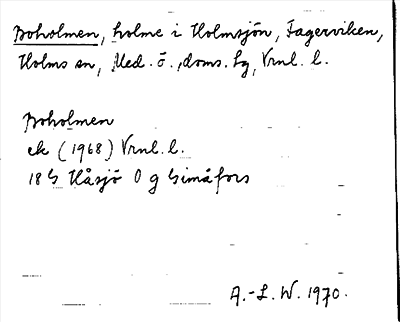 Boholmen, holme i Holmsjön, Fagerviken,
Holms sn, Med. ö. doms. hg, Vrnl. l.
Boholmen
ek (1968) Vrnl. l.
18 G Håsjö 0 g Gimåfors
A.-L. W. 1970.